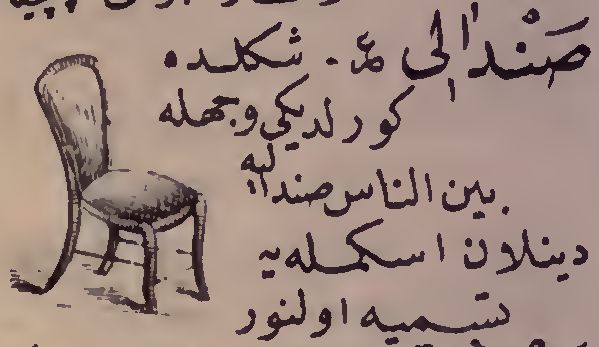 صَنْدالی ع. شکلده
کورلدیکی وجهله
بین الناس صندالیه
دینلان اسکمله یه
تسمیه اولنور